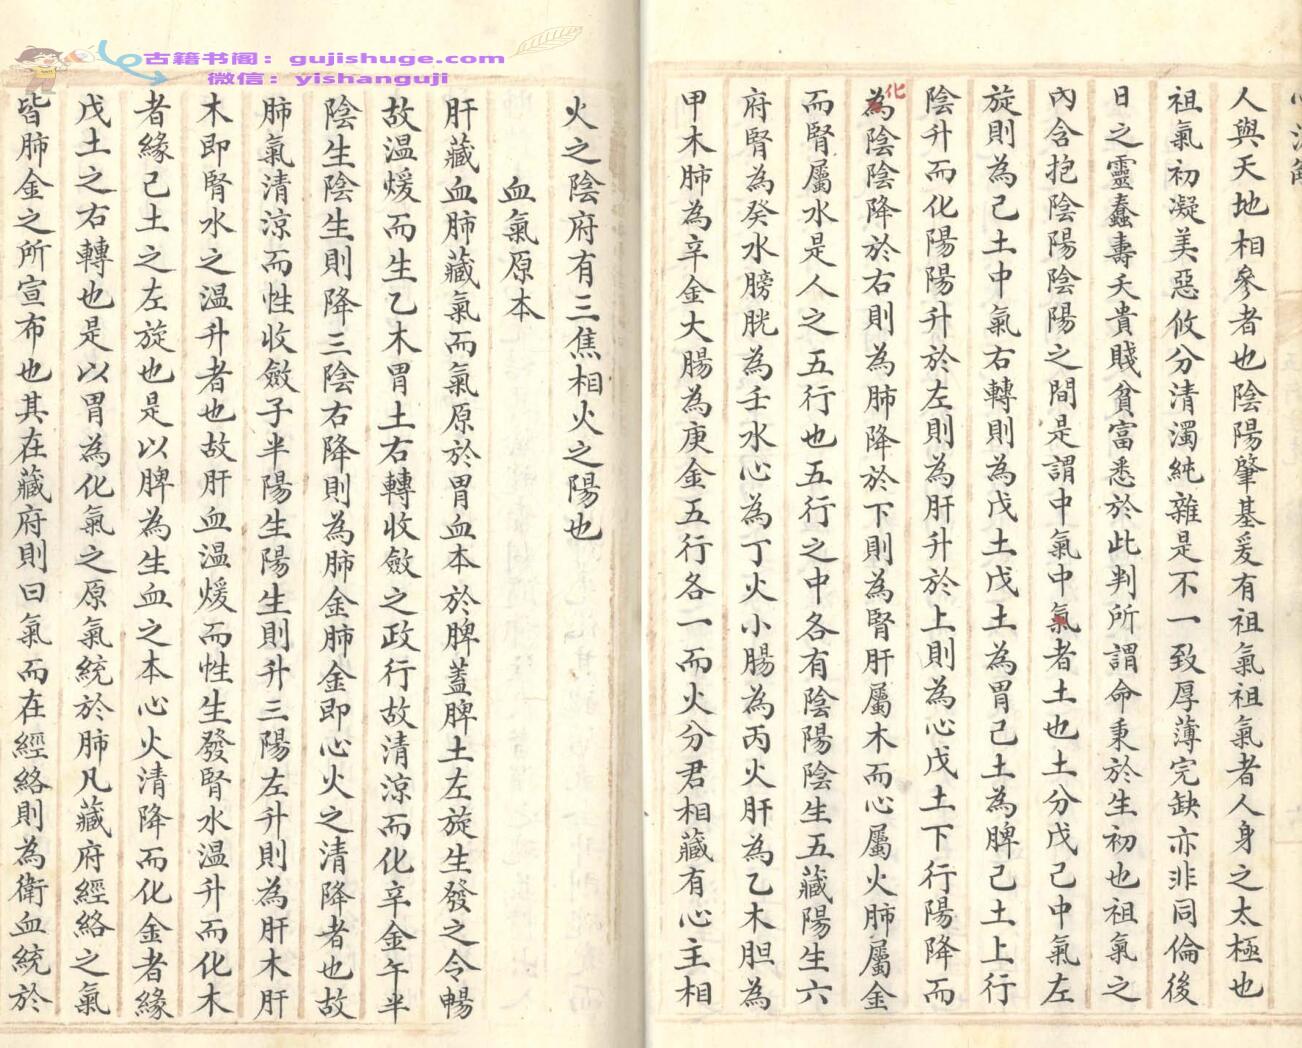 古籍书阁：gujishuge.com
微信：yishanguji
人與天地相參者也陰陽肇基爰有祖氣祖氣者人身之太極也
祖氣初凝美惡攸分清濁純雜是不一致厚薄完缺亦非同倫後
日之靈蠢壽夭貴賤貧富悉於此判所謂命秉於生初也祖氣之
內含抱陰陽陰陽之間是謂中氣中氣者土也土分戊己中氣左
旋則為己土中氣右轉則為戊土戊土為胃己土為脾己土上行
陰升而化陽陽升於左則為肝升於上則為心戊土下行陽降而
化
為陰陰降於右則為肺降於下則為腎肝屬木而心屬火肺屬金
而腎屬水是人之五行也五行之中各有陰陽陰生五藏陽生六
府腎為癸水膀胱為壬水心為丁火小腸為丙火肝為乙木胆為
甲木肺為辛金大腸為庚金五行各一而火分君相藏有心主相
火之陰府有三焦相火之陽也
血氣原本
肝藏血肺藏氣而氣原於胃血本於脾蓋脾土左旋生發之令暢
故温煖而生乙木胃土右轉收斂之政行故清涼而化辛金午半
陰生陰生則降三陰右降則為肺金肺金即心火之清降者也故
肺氣清涼而性收斂子半陽生陽生則升三陽左升則為肝木肝
木即腎水之温升者也故肝血温煖而性生發腎水温升而化木
者緣己土之左旋也是以脾為生血之本心火清降而化金者緣
戊土之右轉也是以胃為化氣之原氣統於肺凡藏府經絡之氣
皆肺金之所宣布也其在藏府則曰氣而在經絡則為衛血統於